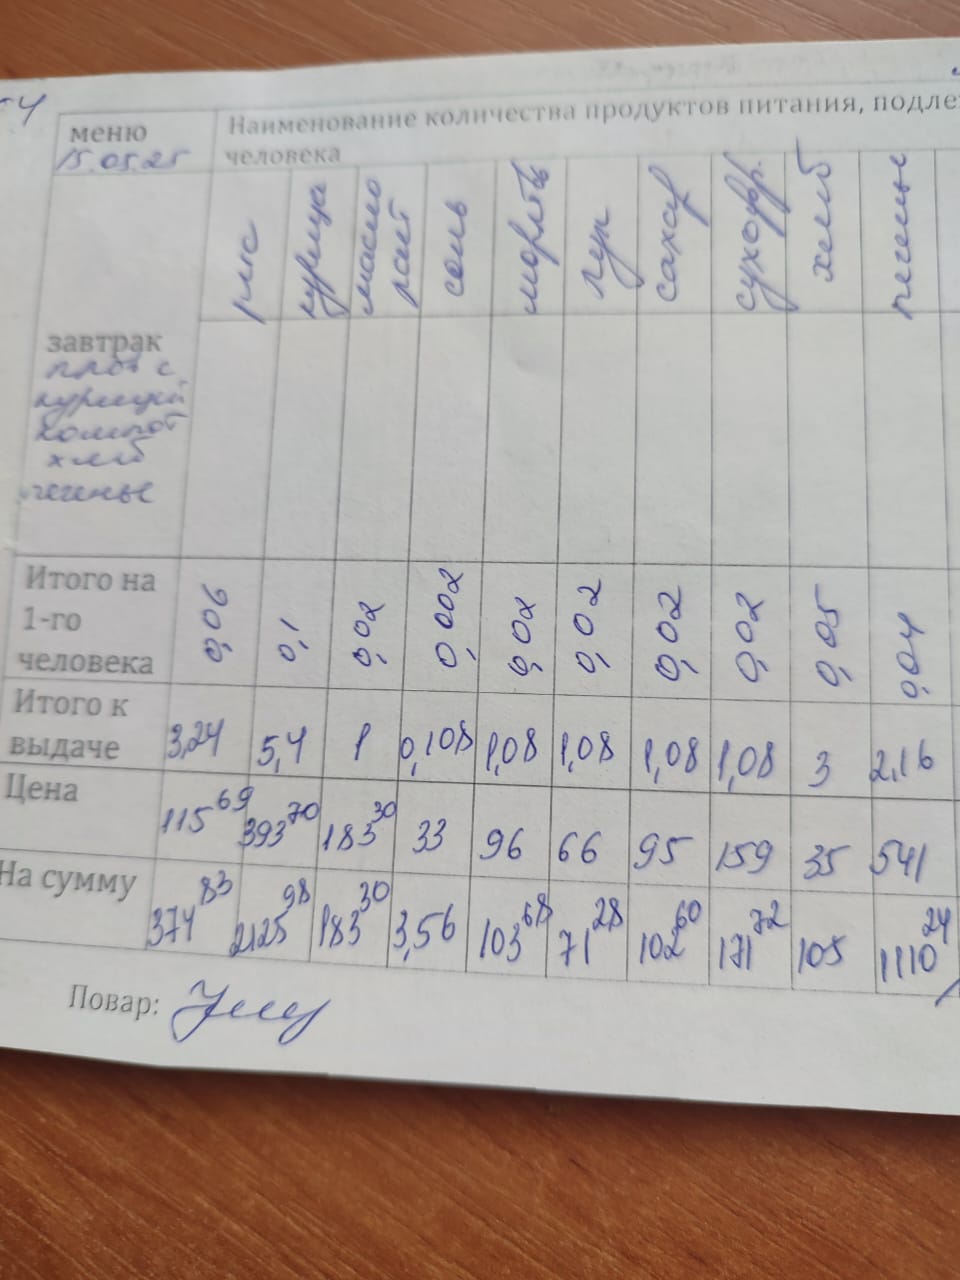 54
меню
15.05.25
Наименование количества продуктов питания, подле
человека
рис курица масло раст соль морковь лук сахар сухофр. хлеб печенье
завтрак
плов с
курицей
компот
хлеб
печенье
Итого на 1-го человека 0,06 0,1 0,02 0,002 0,02 0,02 0,02 0,02 0,05 0,04
Итого к выдаче 3,24 5,4 1 0,108 1,08 1,08 1,08 1,08 3 2,16
Цена 115 69 393 70 183 30 33 96 66 95 159 35 541
На сумму 374 83 2125 98 183 30 3,56 103 68 71 28 102 60 171 72 105 1110 24
Повар: